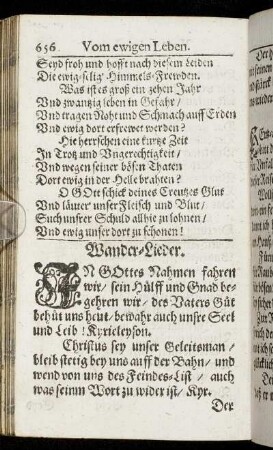 656 Vom ewigen Leben.
Seyd froh und hofft nach diesem Leiden
Die ewig-selig Himmels-Frewden.
Was ist es groß ein zehen Jahr
Vnd zwantzig leben in Gefahr/
Vnd tragen Noht und Schmach auff Erden
Vnd ewig dort erfrewet werden?
Hie herrschen eine kurtze Zeit
In Trotz und Vngerechtigkeit/
Vnd wegen seiner bösen Thaten
Dort ewig in der Helle brahten?
O GOtt schick deines Creutzes Glut
Vnd läuter unser Fleisch und Blut/
Such unsrer Schuld allhie zu lohnen/
Vnd ewig unser dort zu schonen!
Wander-Lieder.
IN GOttes Nahmen fahren
wir/ sein Hülff und Gnad be-
gehren wir/ des Vaters Güt
behüt uns heut/ bewahr auch unsre Seel
und Leib! Kyrieleyson.
Christus sey unser Geleitsman/
bleib stetig bey uns auff der Bahn/ und
wend von uns des Feindes-List/ auch
was seinm Wort zu wider ist/ Kyr.
Der